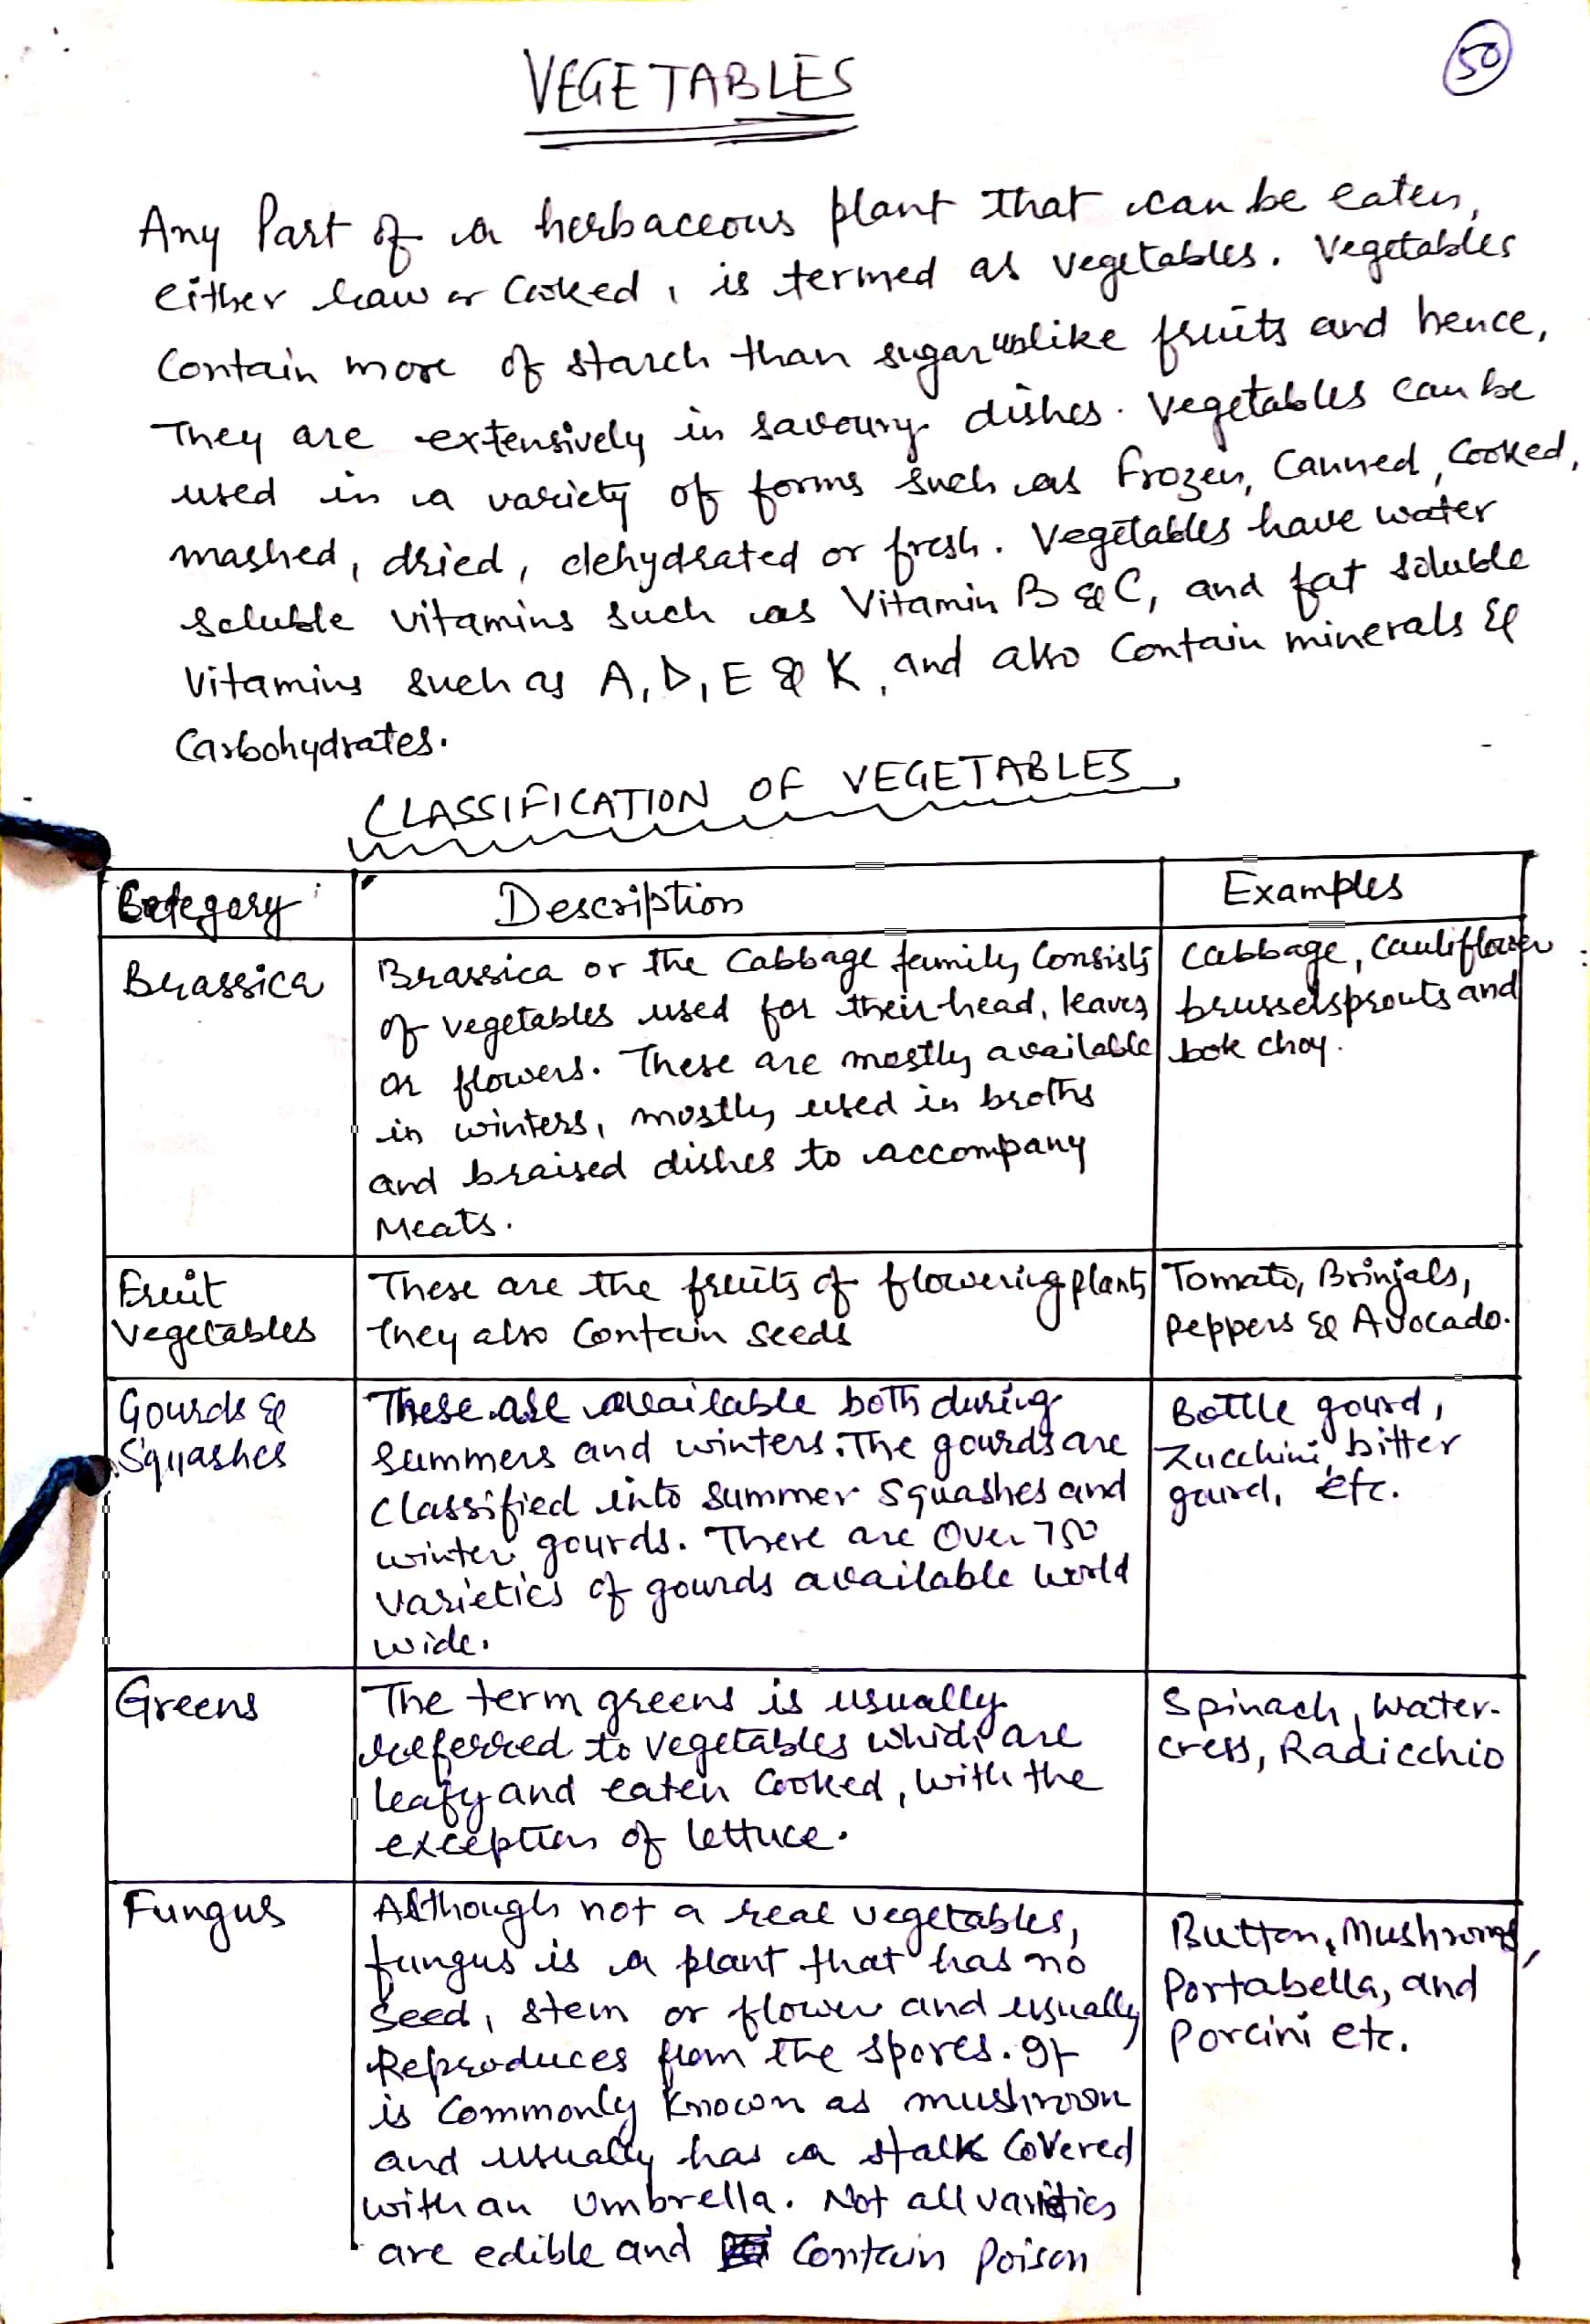 50
VEGETABLES
Any Part of a herbaceous plant that can be eaten,
either raw or Cooked, is termed as vegetables. Vegetables
Contain more of starch than sugar unlike fruits and hence,
They are extensively in savoury dishes. Vegetables can be
used in a variety of forms such as frozen, Canned, Cooked,
mashed, dried, dehydrated or fresh. Vegetables have water
soluble vitamins such as Vitamin B & C, and fat soluble
Vitamins such as A, D, E & K, and also Contain minerals &
Carbohydrates.
CLASSIFICATION OF VEGETABLES
Category
Description
Examples
Brassica
Brassica or the Cabbage family Consists
of vegetables used for their head, leaves
or flowers. These are mostly available
in winters, mostly used in broths
and braised dishes to accompany
Meats.
Cabbage, Cauliflower
brusselsprouts and
bok choy.
Fruit
Vegetables
These are the fruits of flowering plants
They also Contain seeds
Tomato, Brinjals,
Peppers & Avocado.
Gourds &
Squashes
These are available both during
Summers and winters. The gourds are
Classified into Summer Squashes and
winter gourds. There are Over 750
Varieties of gourds available world
wide.
Bottle gourd,
Zucchini, bitter
gourd, etc.
Greens
The term greens is usually
referred to vegetables which are
leafy and eaten Cooked, with the
exception of lettuce.
Spinach, Water-
cress, Radicchio
Fungus
Although not a real vegetables,
fungus is a plant that has no
Seed, stem or flower and usually
Reproduces from the spores. It
is Commonly Known as mushroom
and usually has a stalk Covered
with an Umbrella. Not all varieties
are edible and Contain Poison
Button, Mushrooms,
Portabella, and
Porcini etc.